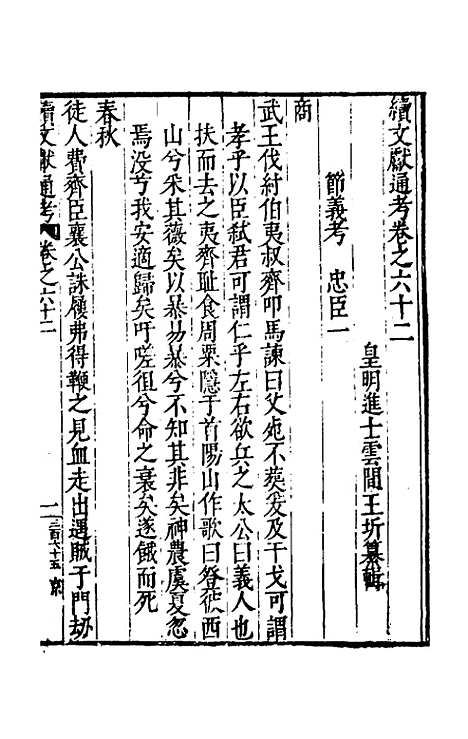 續文獻通考卷之六十二
皇明進士雲間王圻纂輯
節義考 忠臣一
商
武王伐紂伯夷叔齊叩馬諫曰父死不葬爰及干戈可謂
孝乎以臣弒君可謂仁乎左右欲兵之太公曰義人也
扶而去之夷齊耻食周粟隱于首陽山作歌曰登彼西
山兮采其薇矣以暴易暴兮不知其非矣神農虞夏忽
焉没兮我安適歸矣吁嗟徂兮命之衰矣遂餓而死
春秋
徒人費齊臣襄公誅屨弗得鞭之見血走出遇賊于門劫
續文獻通考 卷之六十二 一 二百六十五